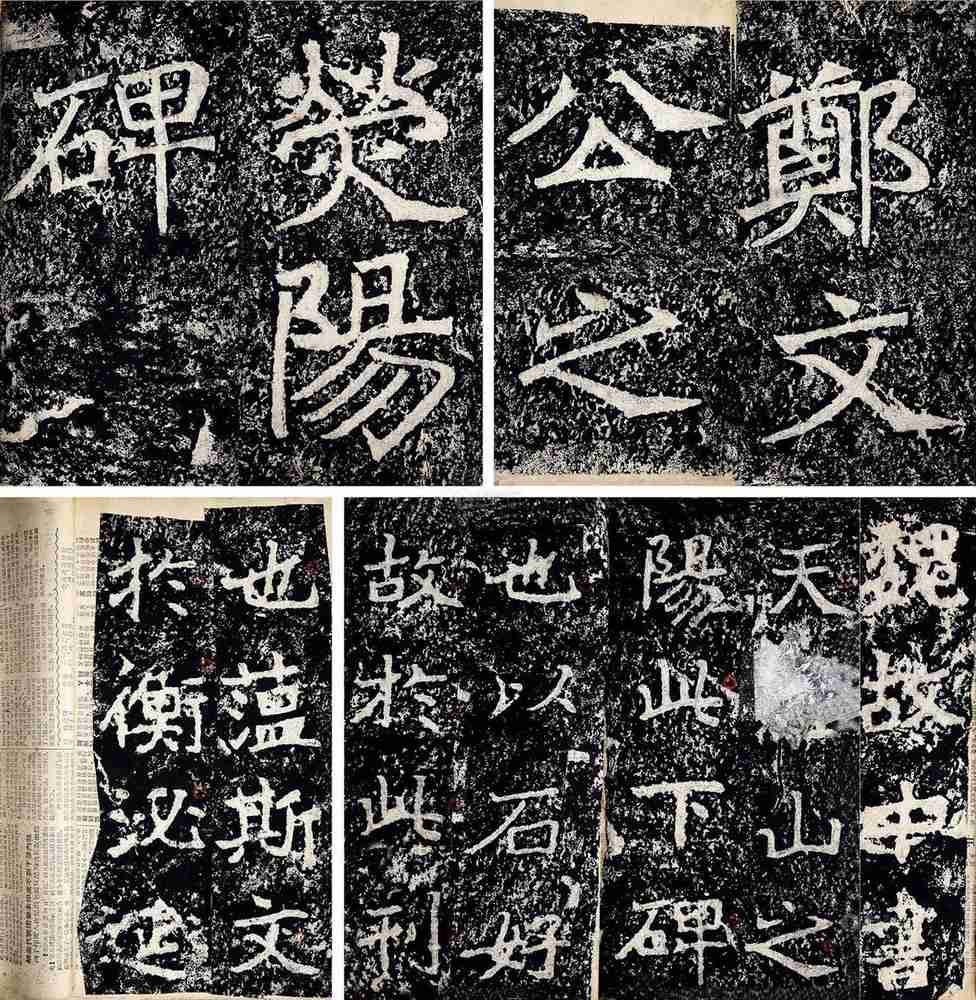 鄭文
公之
熒陽
碑
魏故中書
天山之
陽此下碑
也以石好
故於此刊
也薀斯文
於衡泌延